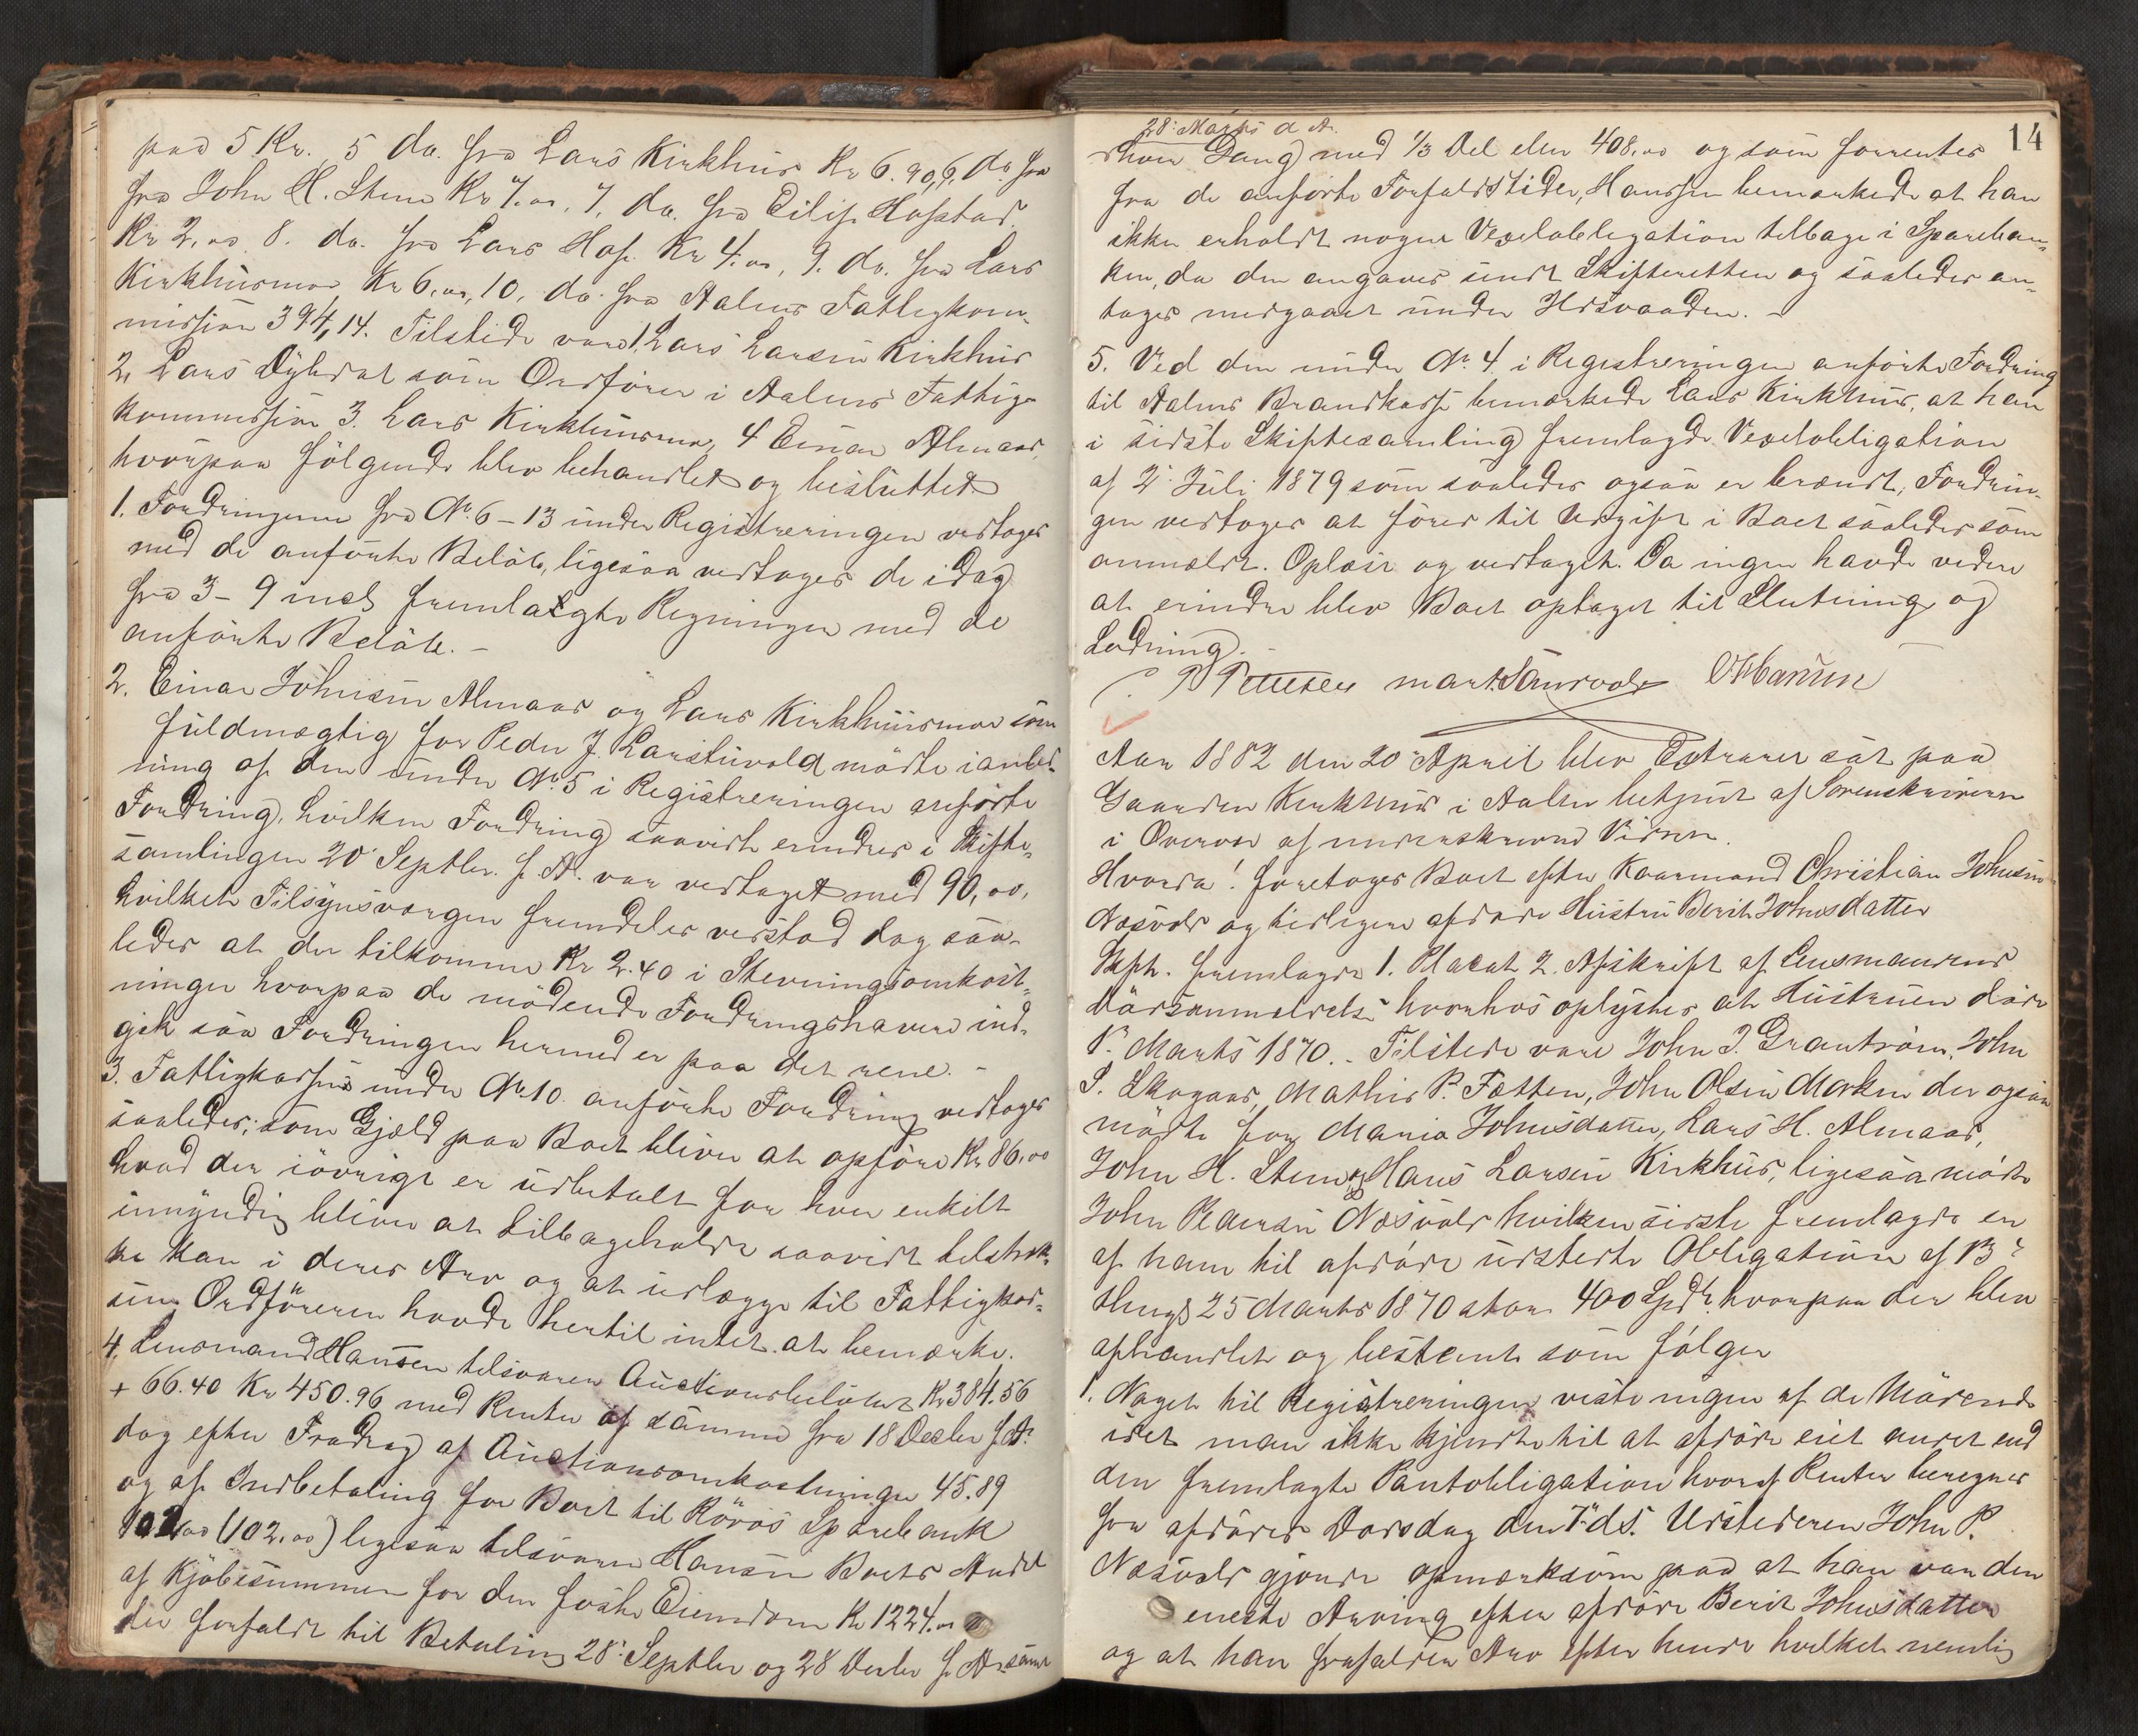 paa 5 Kr. 5 do. fra Lars Kirkhus Kr 6.90, 6. do fra
fra John H. Steen Kr 7.00, 7. do. fra Eilif Hofstad
Kr 2,00 8. do. fra Lars Hof. Kr 4.00, 9. do. fra Lars
Kirkhusmoe Kr 6,00, 10. do. fra Aalens Fattigkom-
mission 394,14. Tilstede vare 1, Lars Larsen Kirkhus
2, Lars Dyhrat som Ordfører i Aalens Fattig-
kommission 3. Lars Kirkhusmoe, 4 Einar Almaas,
hvorpaa følgende blev behandlet og besluttet
1. Fordringerne fra No. 6-13 under Registreringen vedtoges
med de anførte Beløb, ligesaa vedtoges de idag
fra 3-9 incl fremlagte Regninger med de
anførte Beløb. -
2. Einar Johnsen Almaas og Lars Kirkhusmoe som
fuldmægtig for Peder J. Larstuvold mødte i anled-
ning af den under No. 5 i Registreringen anførte
Fordring, hvilken Fordring saavidt erindres i Skifte-
samlingen 20 Septbr. f. A. var vedtaget med 90,00,
hvilket Tilsynsværgen fremdeles vedstod dog saa-
ledes at der tilkommer Kr 2.40 i Stevningsomkost-
ninger hvorpaa de mødende Fordringshavere ind-
gik saa Fordringen hermed er paa det rene. -
3. Fattigkassens under No. 10. anførte Fordring vedtoges
saaledes: som Gjæld paa Boet bliver at opføre Kr 86,00
hvad der iøvrigt er udbetalt for hver enkelt
umyndig bliver at tilbageholde saavidt tilstræk-
ke kan i deres Arv og at udlægge til Fattigkas-
sen. Ordføreren havde hertil intet at bemærke.
4. Lensmand Hansen tilsvarer Auctionsbeløbet Kr 384.56
+ 66.40 Kr 450.96 med Renter af samme fra 18 Decbr f. A.
dog efter Fradrag af Auctionsomkostninger 45.89
og af Indbetaling for Boet til Røros Sparebank
102,00 (102.00) ligesaa tilsvarer Hansen Boets Andel
af Kjøbesummen for den faste Eiendom Kr 1224.00
der forfaldt til Betaling 28. Septbr og 28 Decbr f. A. samt
14
28. Marts d A.
(hver Gang) med 1/3 Del eller 408.00 og som forrentes
fra de anførte Forfaldstider, Hansen bemærkede at han
ikke erholdt nogen Vexelobligation tilbage i Spareban-
ken, da den angaves sendt Skifteretten og saaledes an-
tages medgaaet under Ildsvaaden. -
5. Ved den under No. 4 i Registreringen anførte Fordring
til Aalens Brandkasse bemærkede Lars Kirkhus, at han
i sidste Skiftesamling fremlagde Vexelobligation
af 2. Juli 1879 som saaledes ogsaa er brændt, Fordrin-
gen vedtoges at føres til Udgift i Boet saaledes som
anmeldt. Oplæst og vedtaget. Da ingen havde videre
at erindre blev Boet optaget til Slutning og
Lodning. -
P. Pettersen O Hansen
Aar 1882 den 20 April blev Extraret sat paa
Gaarden Kirkhus i Aalen betjent af Sorenskriveren
i Overvær af underskrevne Vidner.
Hvorda! foretoges Boet efter Kaarmand Christian Johnsen
Næsvold og tidligere afdøde Hustru Berit Johnsdatter
Skft. fremlagde 1. Placat 2. Afskrift af Lensmandens
Dødsanmeldelse hvorhos oplystes at Hustruen døde
1. Marts 1870. - Tilstede vare John J. Grantrøen, John
S. Skogaas, Mathis P. Fætten, John Olsen Morken der ogsaa
mødte for Maria Johnsdatter, Lars H. Almaas,
John H. Steen og Hans Larsen Kirkhus, ligesaa mødte
John Pedersen Næsvold hvilken sidste fremlagde en
af ham til afdøde udstedte Obligation af 13
thingl 25 Marts 1870 stor 400 Spdlr. hvorpaa der blev
afhandlet og bestemt som følger
1. Noget til Registreringen viste ingen af de Mødende
idet man ikke kjendte til at afdøde eiet andet end
den fremlagte Pantobligation hvoraf Renter beregnes
fra afdødes Dødsdag den 7de ds. Udstederen John P.
Næsvold gjorde opmærksom paa at han var den
eneste Arving efter afdøde Berit Johnsdatter
og at han frafalder Arv efter hende hvilket nemlig